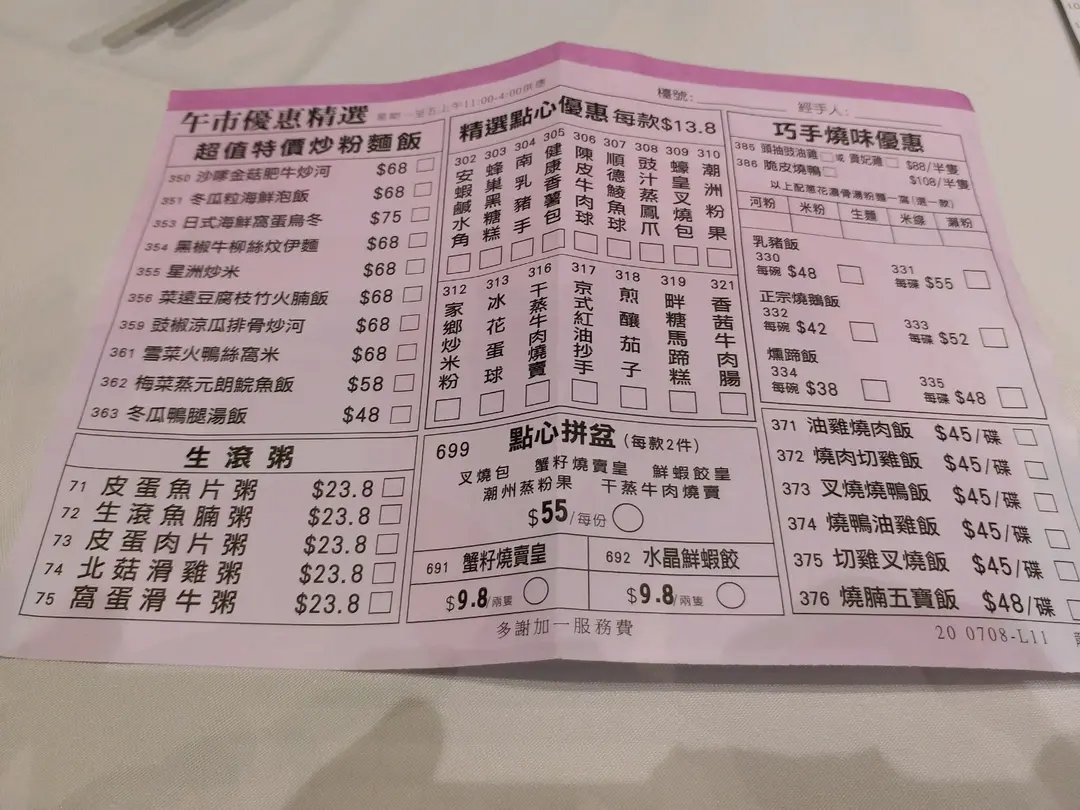 午市優惠精選 星期一至五上午11:00-4:00供應
超值特價炒粉麵飯
350 沙嗲金菇肥牛炒河 $68
351 冬瓜粒海鮮泡飯 $68
353 日式海鮮窩蛋烏冬 $75
354 黑椒牛柳絲炆伊麵 $68
355 星洲炒米 $68
356 菜遠豆腐枝竹火腩飯 $68
359 豉椒涼瓜排骨炒河 $68
361 雪菜火鴨絲窩米 $68
362 梅菜蒸元朗鯇魚飯 $58
363 冬瓜鴨腿湯飯 $48
生滾粥
71 皮蛋魚片粥 $23.8
72 生滾魚腩粥 $23.8
73 皮蛋肉片粥 $23.8
74 北菇滑雞粥 $23.8
75 窩蛋滑牛粥 $23.8
精選點心優惠 每款$13.8
302 安蝦鹹水角
303 蜂巢黑糖糕
304 南乳豬手
305 健康香薯包
306 陳皮牛肉球
307 順德鯪魚球
308 豉汁蒸鳳爪
309 蠔皇叉燒包
310 潮洲粉果
312 家鄉炒米粉
313 冰花蛋球
316 干蒸牛肉燒賣
317 京式紅油抄手
318 煎釀茄子
319 畔糖馬蹄糕
321 香茜牛肉腸
699 點心拼盆 (每款2件)
叉燒包 蟹籽燒賣皇 鮮蝦餃皇
潮州蒸粉果 干蒸牛肉燒賣
$55/每份
691 蟹籽燒賣皇
$9.8/兩隻
692 水晶鮮蝦餃
$9.8/兩隻
多謝加一服務費
檯號: 經手人:
巧手燒味優惠
385 頭抽豉油雞 或 貴妃雞 $88/半隻
386 脆皮燒鴨 $108/半隻
以上配蔥花濃骨湯粉麵一窩(選一款)
河粉 米粉 生麵 米線 瀨粉
乳豬飯
330 每碗 $48
331 每碟 $55
正宗燒鵝飯
332 每碗 $42
333 每碟 $52
燻蹄飯
334 每碗 $38
335 每碟 $48
371 油雞燒肉飯 $45/碟
372 燒肉切雞飯 $45/碟
373 叉燒燒鴨飯 $45/碟
374 燒鴨油雞飯 $45/碟
375 切雞叉燒飯 $45/碟
376 燒腩五寶飯 $48/碟
20 0708-L11